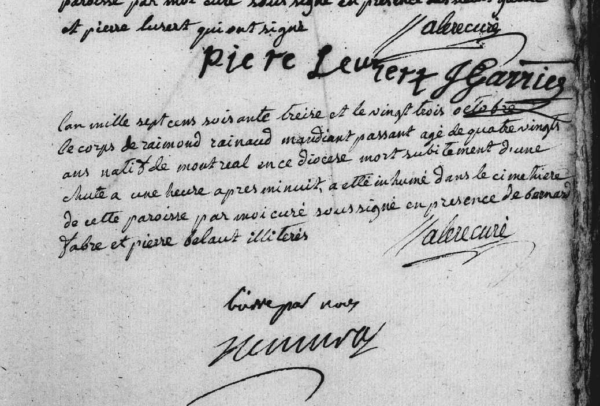 paroisse par moi curé sous signé en presence de
et pierre lusert qui ont signé
Valere curé
Piere Leurert J Garrier
L'an mille sept cens soisante treise et le vingt trois octobre
le corps de raimond rainaud mandiant passant agé de quatre vingts
ans natif de montreal en ce diocèse mort subitement d'une
chute a une heure apres minuit, a etté inhumé dans le cimetiere
de cette paroisse par moi curé sous signé en presence de bernard
fabre et pierre belaut illiterés
Valere curé
par nous